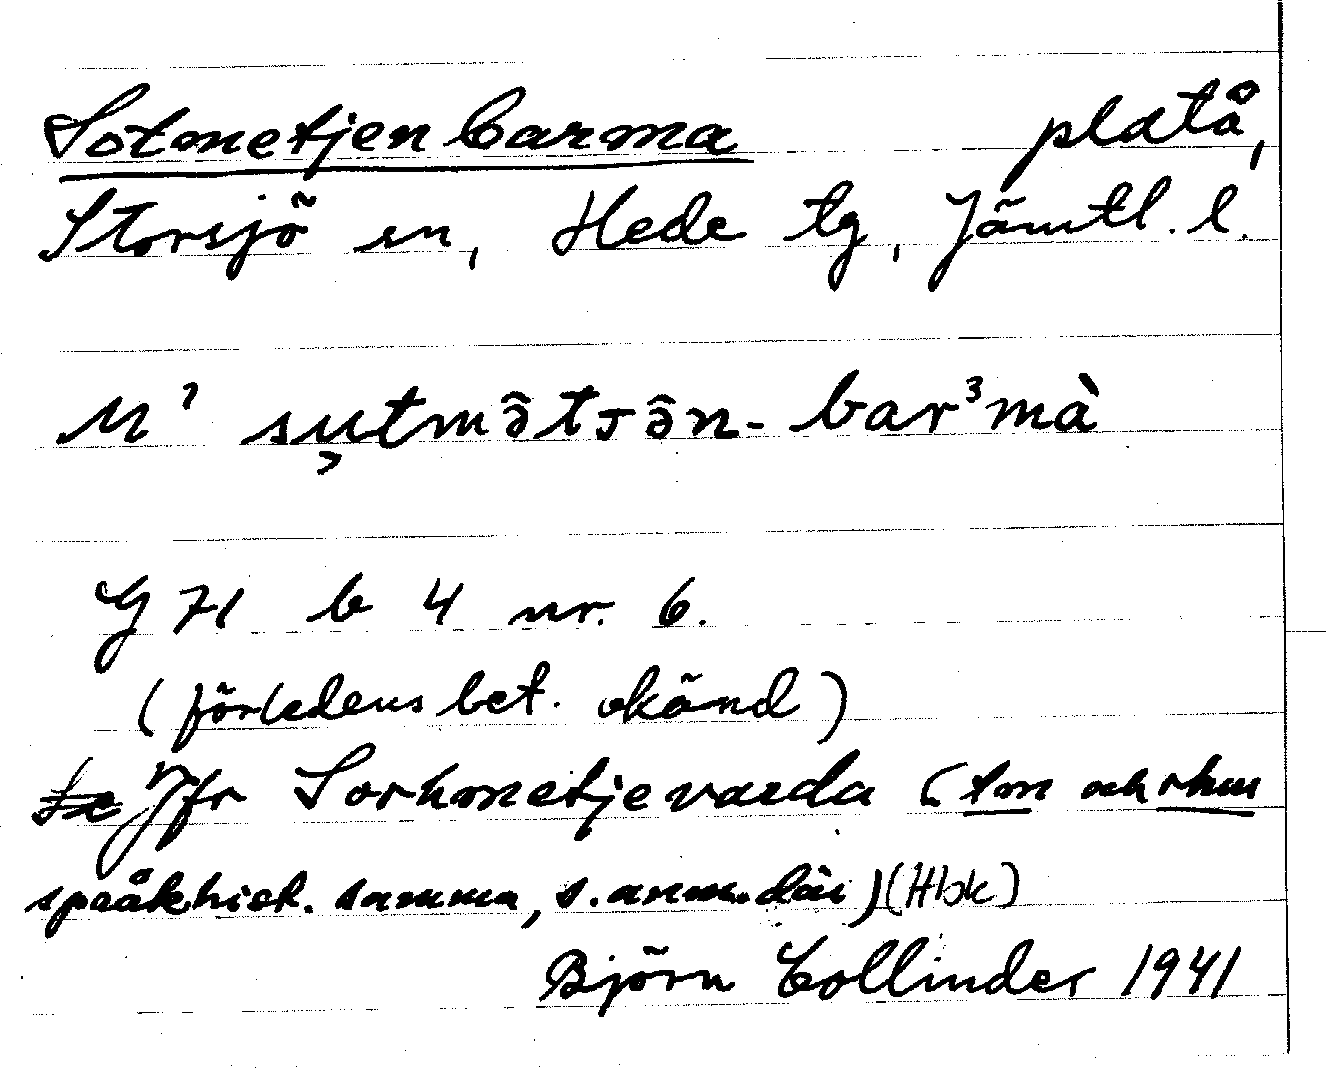 Sotmetjenbarma platå,
Storsjö sn, Hede tg, Jämtl. l.
M' su̦tmə̂tɪə̂n-bar³mà
G 71 b 4 nr. 6.
(förledens bet. okänd)
Jfr Sorkmetjevarda (tm och rkm
språkhist. samma, s. anm. där) (Hbk)
Björn Collinder 1941